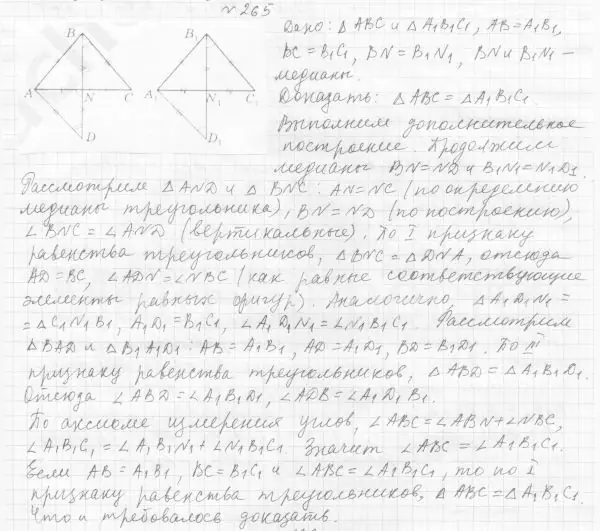 № 265
Дано: △ ABC и △ A₁B₁C₁, AB = A₁B₁,
BC = B₁C₁, BN = B₁N₁, BN и B₁N₁ –
медианы.
Доказать: △ ABC = △ A₁B₁C₁.
Выполним дополнительное
построение. Продолжим
медианы BN = ND и B₁N₁ = N₁D₁.
B
A N C
D
B₁
A₁ N₁ C₁
D₁
Рассмотрим △ AND и △ BNC: AN = NC (по определению
медианы треугольника), BN = ND (по построению),
∠ BNC = ∠ AND (вертикальные). По I признаку
равенства треугольников, △ BNC = △ DNA, отсюда
AD = BC, ∠ ADN = ∠ NBC (как равные соответствующие
элементы равных фигур). Аналогично, △ A₁D₁N₁ =
= △ C₁N₁B₁, A₁D₁ = B₁C₁, ∠ A₁D₁N₁ = ∠ N₁B₁C₁. Рассмотрим
△ BAD и △ B₁A₁D₁: AB = A₁B₁, AD = A₁D₁, BD = B₁D₁. По III
признаку равенства треугольников, △ ABD = △ A₁B₁D₁.
Отсюда ∠ ABD = ∠ A₁B₁D₁, ∠ ADB = ∠ A₁D₁B₁.
По аксиоме измерения углов, ∠ ABC = ∠ ABN + ∠ NBC,
∠ A₁B₁C₁ = ∠ A₁B₁N₁ + ∠ N₁B₁C₁. Значит ∠ ABC = ∠ A₁B₁C₁.
Если AB = A₁B₁, BC = B₁C₁ и ∠ ABC = ∠ A₁B₁C₁, то по I
признаку равенства треугольников, △ ABC = △ A₁B₁C₁.
Что и требовалось доказать.